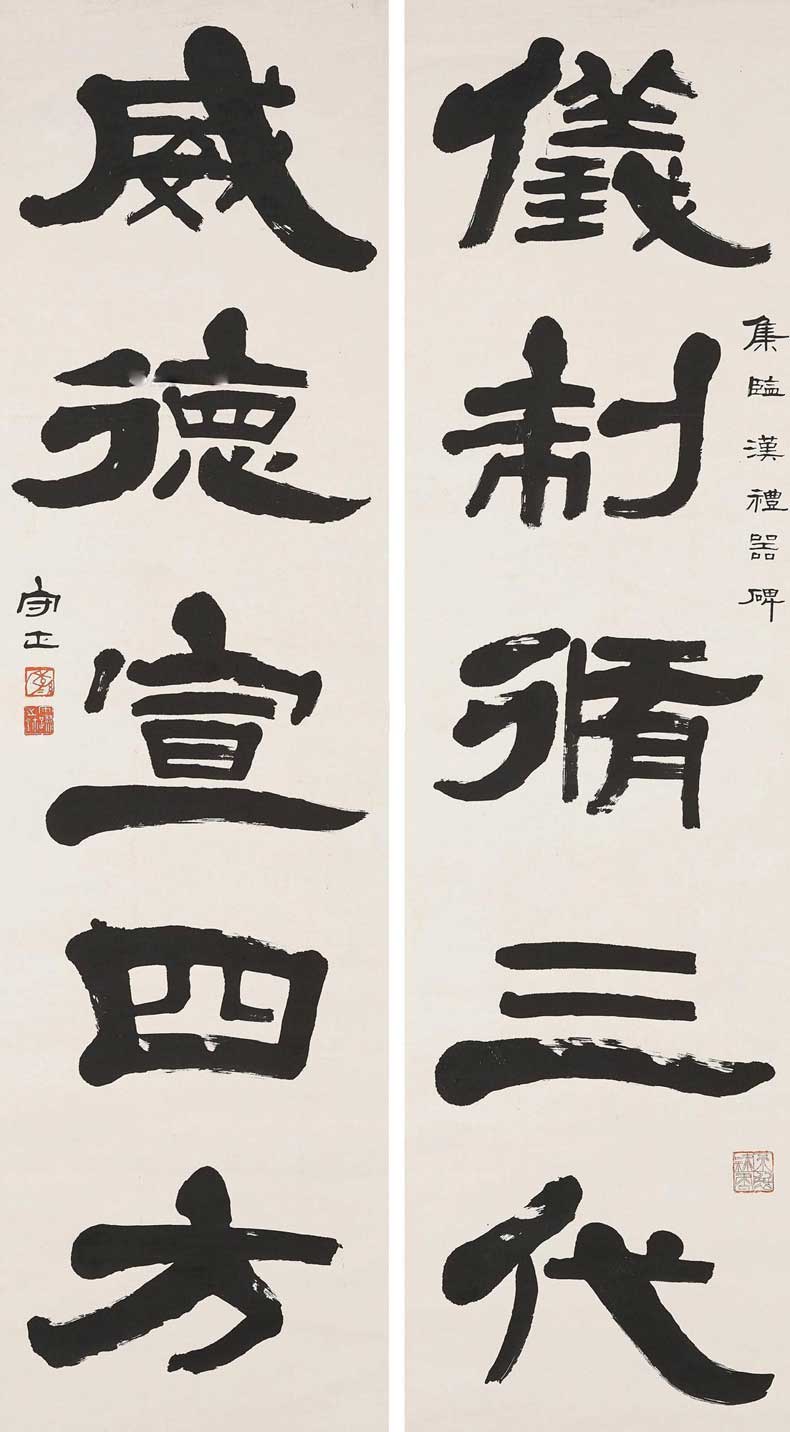 儀制脩三代
集臨漢禮器碑
威德宣四方
守正